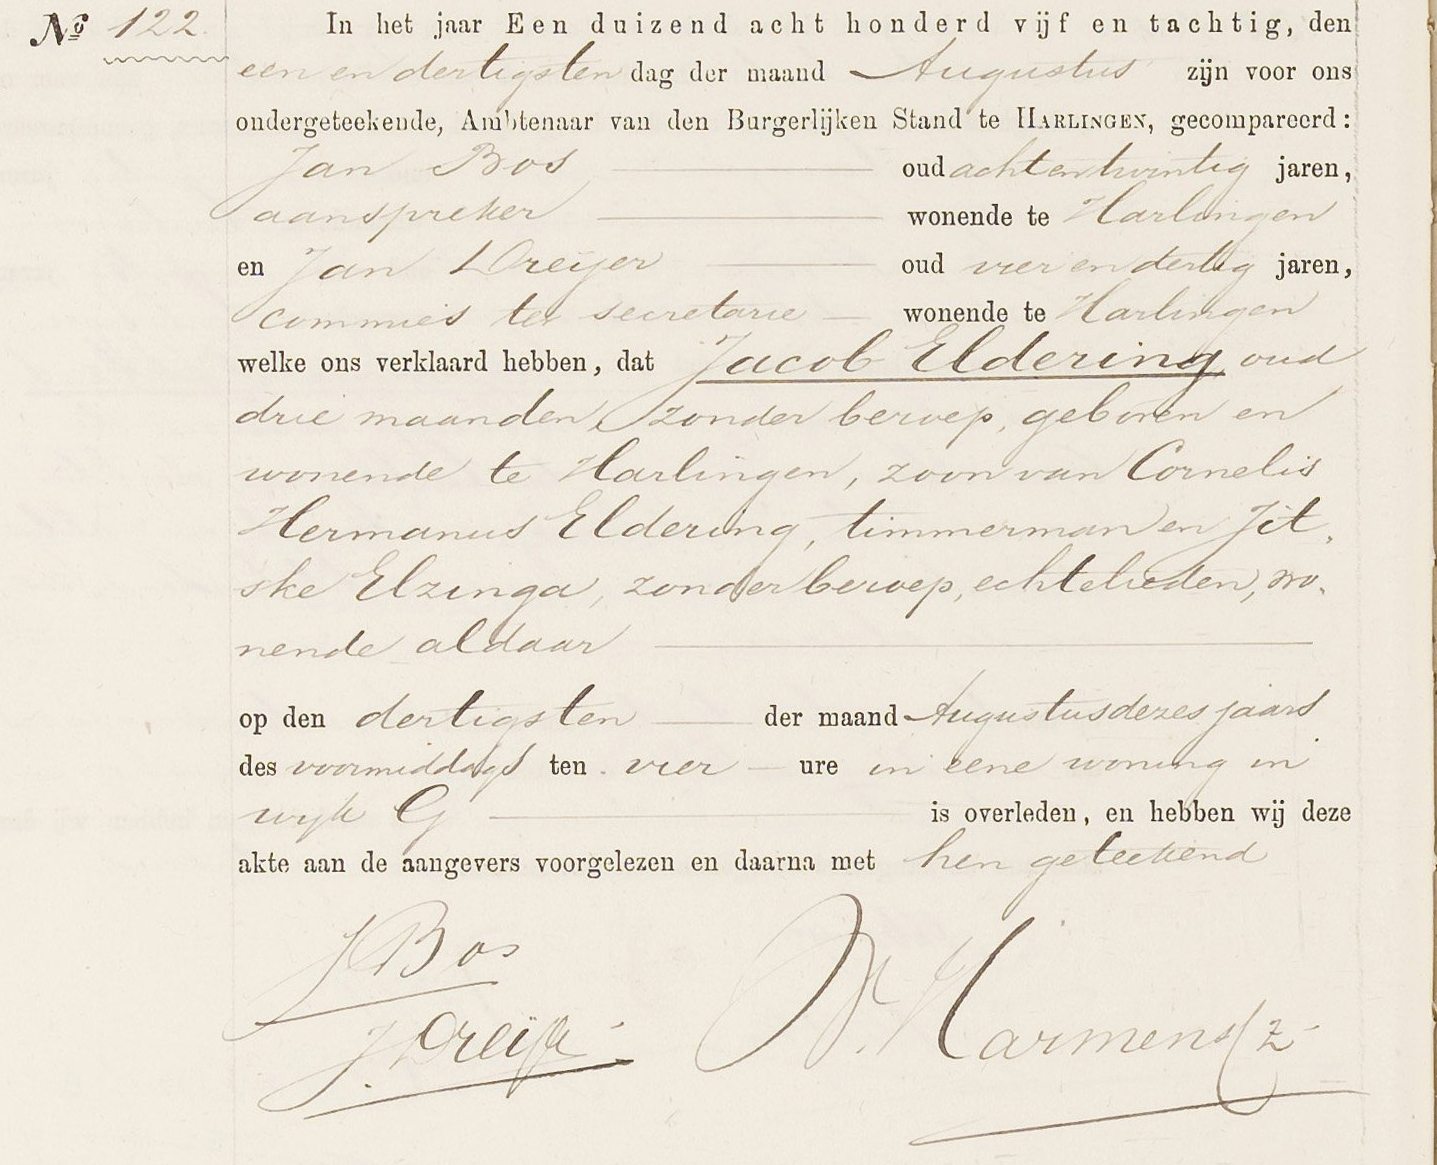 No 122.
In het jaar Een duizend acht honderd vijf en tachtig, den
een en dertigsten dag der maand Augustus zijn voor ons
ondergeteekende, Ambtenaar van den Burgerlijken Stand te HARLINGEN, gecompareerd:
Jan Bos oud achtentwintig jaren,
aanspreker wonende te Harlingen
en Jan Dreijer oud vierendertig jaren,
commies ter secretarie wonende te Harlingen
welke ons verklaard hebben, dat Jacob Eldering, oud
drie maanden, zonder beroep, geboren en
wonende te Harlingen, zoon van Cornelis
Hermanus Eldering, timmerman en Jit-
ske Elzinga, zonder beroep, echtelieden, wo-
nende aldaar
op den dertigsten der maand Augustus dezes jaars
des voormiddags ten vier ure in eene woning in
wijk G is overleden, en hebben wij deze
akte aan de aangevers voorgelezen en daarna met hen geteekend
J Bos
J. Dreijer
Harmensz